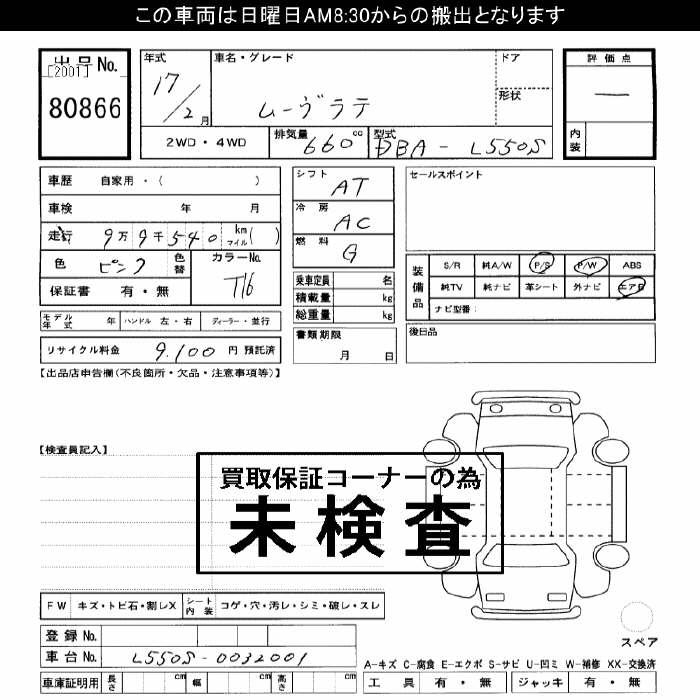 この車両は日曜日AM8:30からの搬出となります
出品No.
[2001]
80866
年式
17/2月
車名・グレード
ムーヴラテ
ドア
形状
評価点
―
内装
2WD・4WD
排気量 660cc
型式 DBA-L550S
車歴 自家用・( )
車検 年 月
走行 9万9千540 km マイル( )
色 ピンク 色替
カラーNo. T16
保証書 有・無
モデル年式 年 ハンドル 左・右 ディーラー・並行
リサイクル料金 9,100 円 預託済
シフト AT
冷房 AC
燃料 G
乗車定員 名
積載量 kg
総重量 kg
書類期限
月 日
セールスポイント
装備品
S/R 純A/W P/S P/W ABS
純TV 純ナビ 革シート 外ナビ エアB
ナビ型番:
後日品
【出品店申告欄(不良箇所・欠品・注意事項等)】
【検査員記入】
買取保証コーナーの為
未検査
FW キズ・トビ石・割レX シート内装 コゲ・穴・汚レ・シミ・破レ・スレ
登録No.
車台No. L550S-0032001
車庫証明用 長さ cm 幅 cm 高さ cm
スペア
A-キズ C-腐食 E-エクボ S-サビ U-凹ミ W-補修 XX-交換済
工具 有・無 ジャッキ 有・無